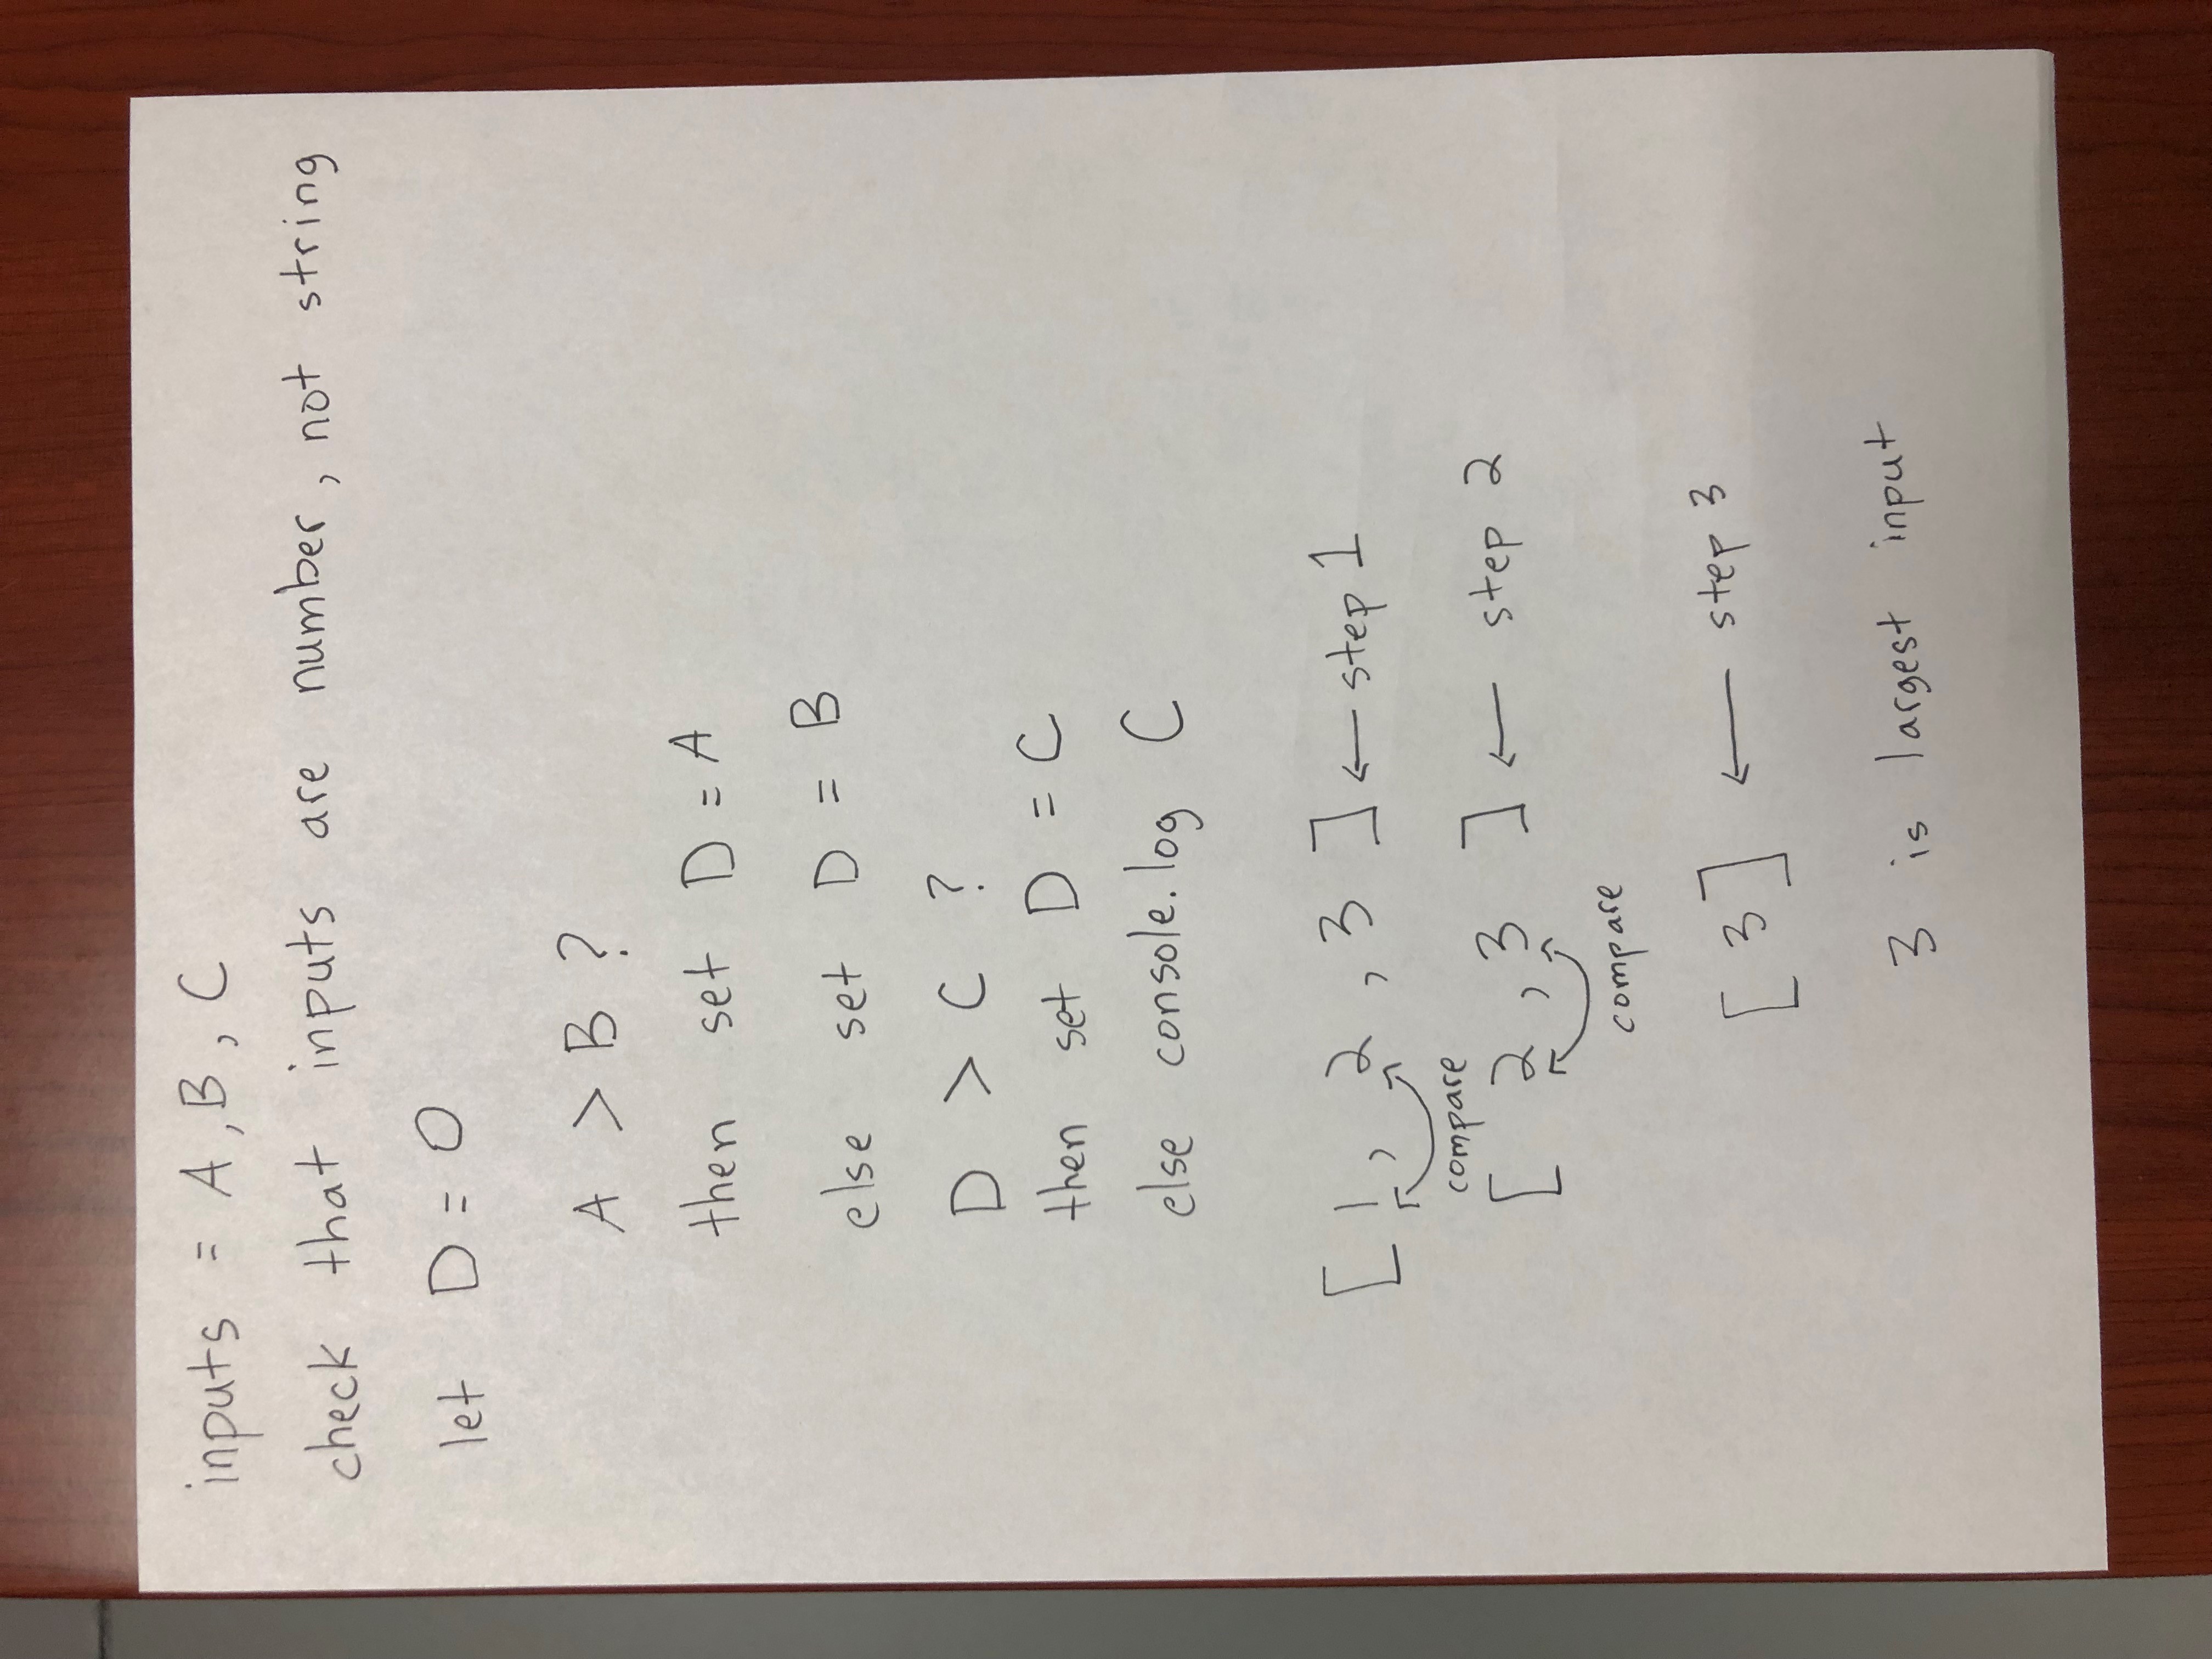 inputs = A, B, C
check that inputs are number, not string
let D = 0
A > B ?
then set D = A
else set D = B
D > C ?
then set D = C
else console.log C
[ 1, 2, 3 ] ← step 1
compare
[ 2, 3 ] ← step 2
compare
[ 3 ] ← step 3
3 is largest input